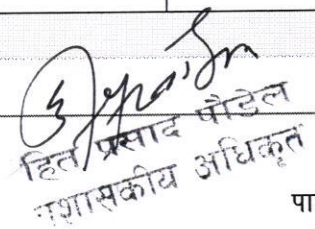 हित प्रसाद पौडेल
प्रशासकीय अधिकृत
पा